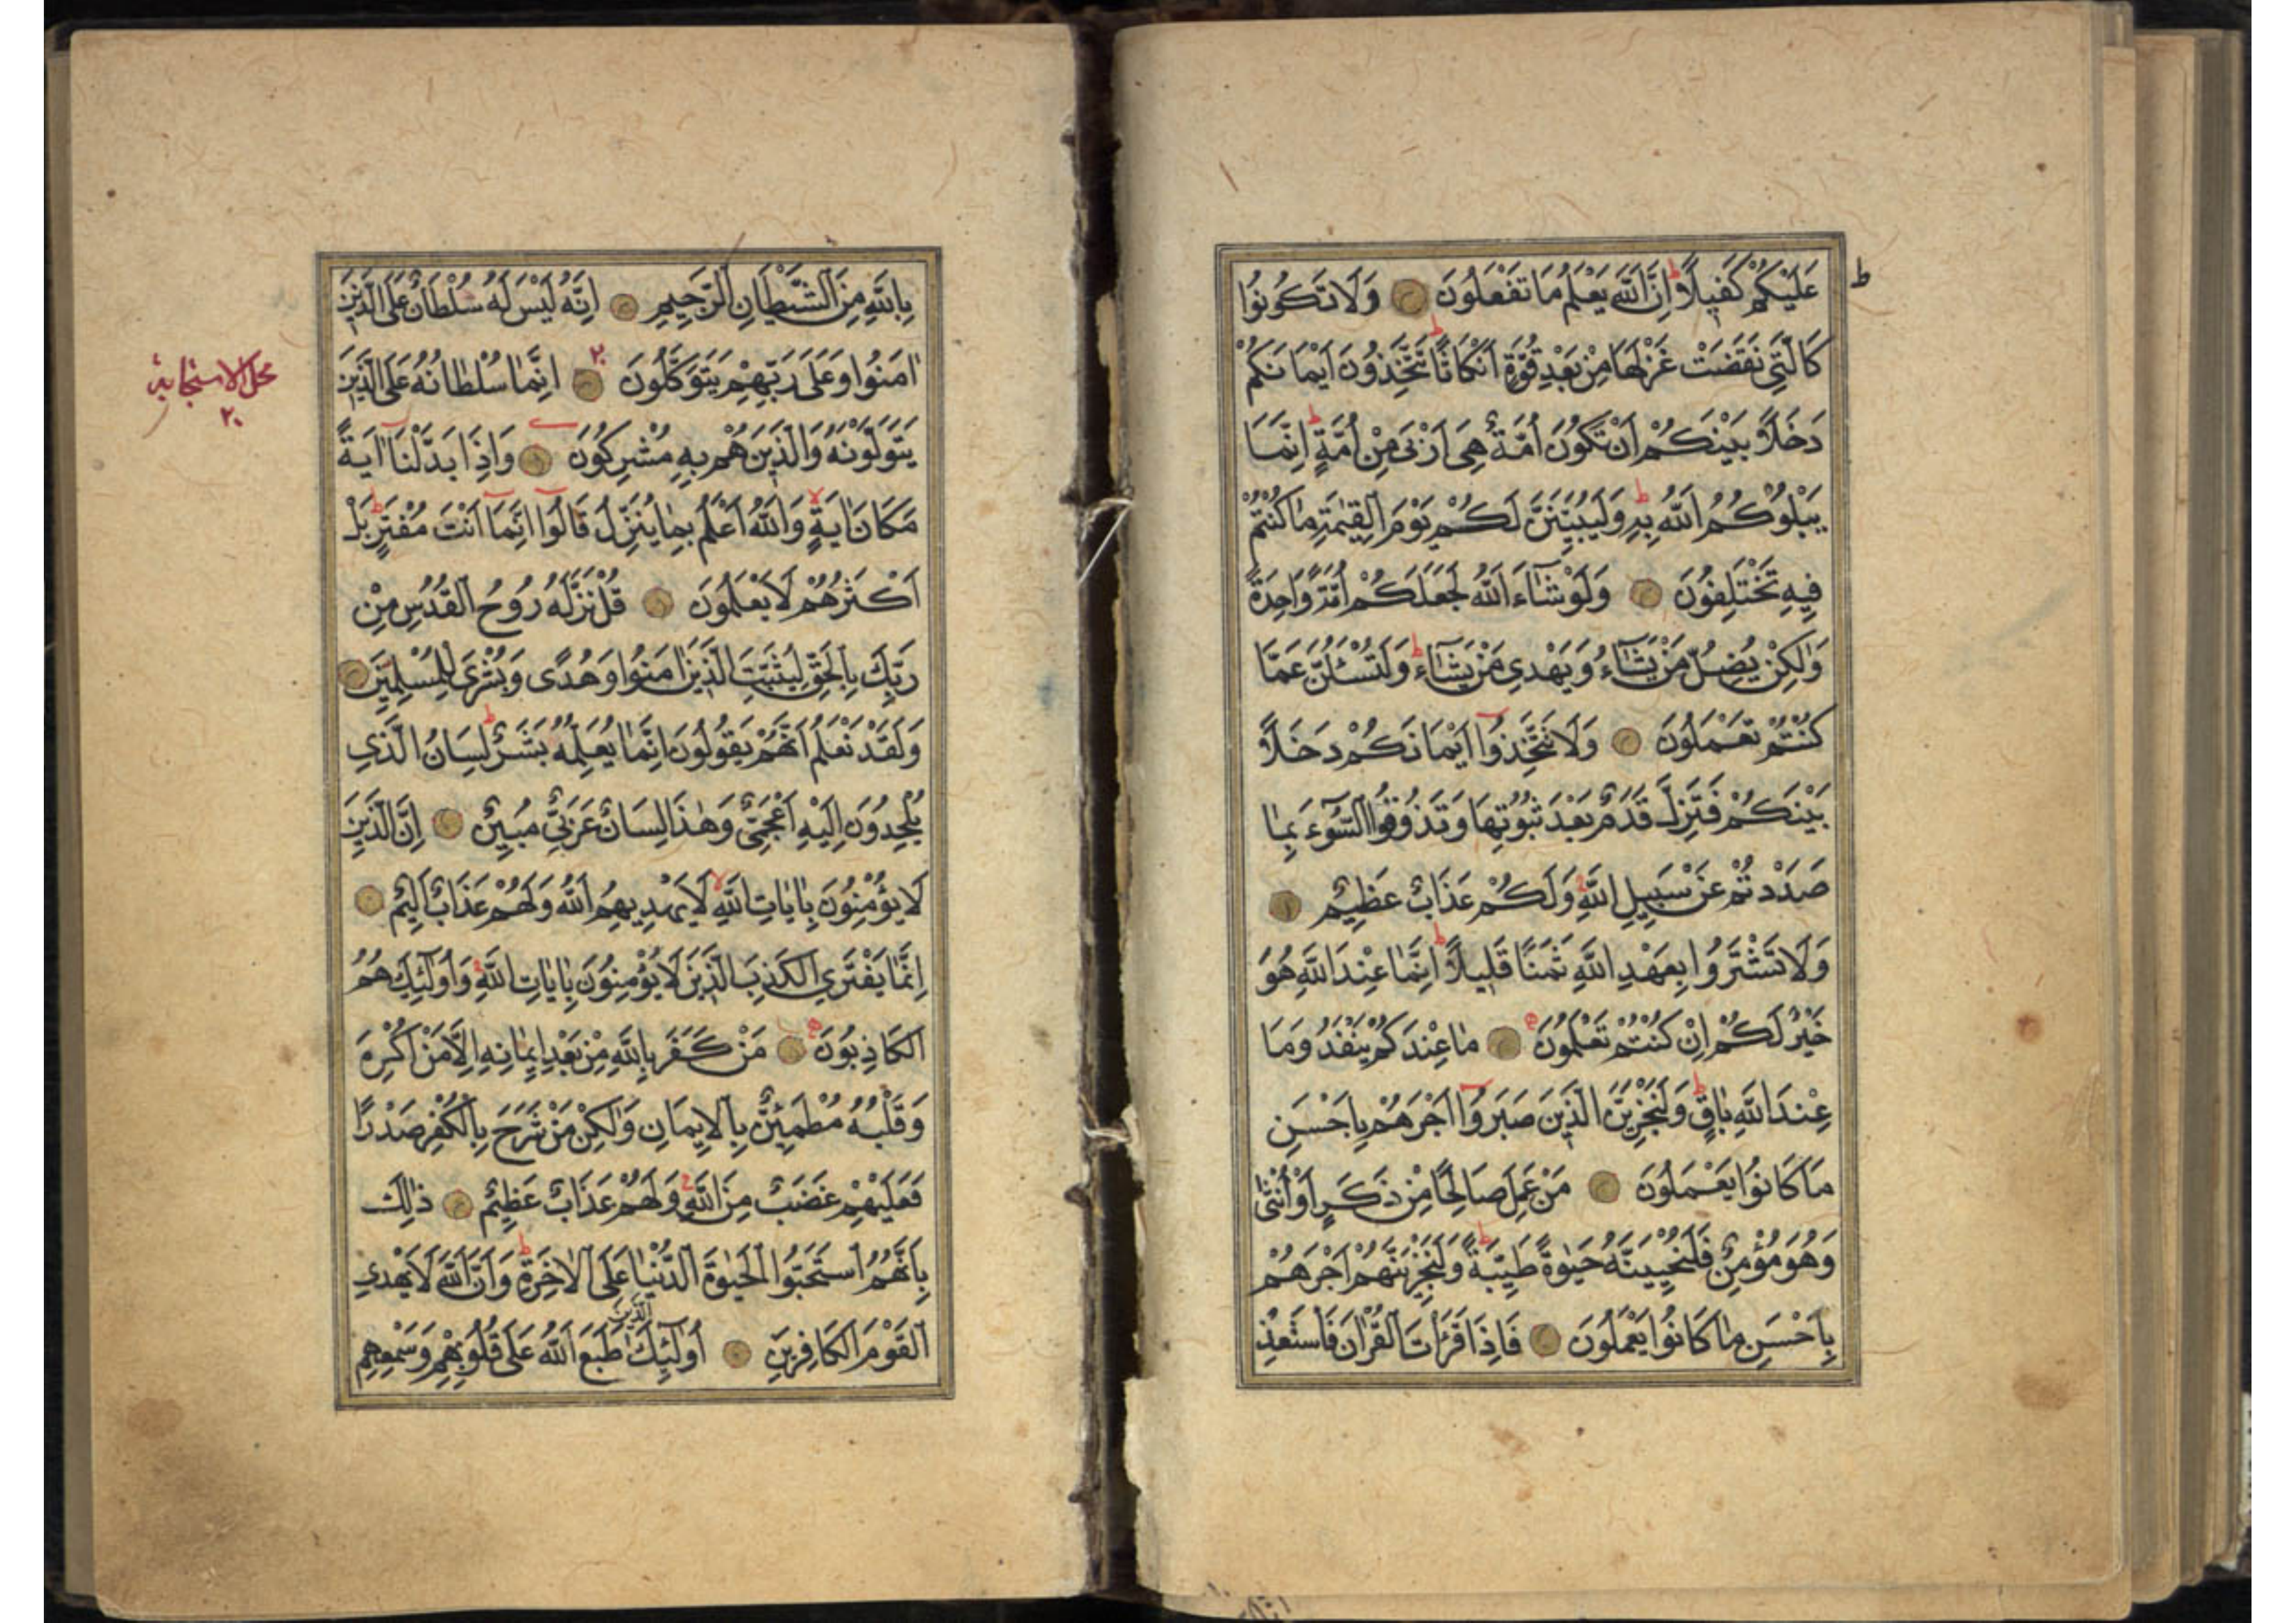 عَلَيْكُمْ كَفِيلًا ط اِنَّ اللّٰهَ يَعْلَمُ مَا تَفْعَلُونَ وَلَا تَكُونُوا
كَالَّتِي نَقَضَتْ غَزْلَهَا مِنْ بَعْدِ قُوَّةٍ اَنْكَاثًا ط تَتَّخِذُونَ اَيْمَانَكُمْ
دَخَلًا بَيْنَكُمْ اَنْ تَكُونَ اُمَّةٌ هِيَ اَرْبٰى مِنْ اُمَّةٍ ط اِنَّمَا
يَبْلُوكُمُ اللّٰهُ بِهِ ط وَلَيُبَيِّنَنَّ لَكُمْ يَوْمَ الْقِيٰمَةِ مَا كُنْتُمْ
فِيهِ تَخْتَلِفُونَ وَلَوْ شَآءَ اللّٰهُ لَجَعَلَكُمْ اُمَّةً وَاحِدَةً
وَلٰكِنْ يُضِلُّ مَنْ يَشَآءُ وَيَهْدِي مَنْ يَشَآءُ ط وَلَتُسْئَلُنَّ عَمَّا
كُنْتُمْ تَعْمَلُونَ وَلَا تَتَّخِذُوا اَيْمَانَكُمْ دَخَلًا
بَيْنَكُمْ فَتَزِلَّ قَدَمٌ بَعْدَ ثُبُوتِهَا وَتَذُوقُوا السُّوٓءَ بِمَا
صَدَدْتُمْ عَنْ سَبِيلِ اللّٰهِ وَلَكُمْ عَذَابٌ عَظِيمٌ
وَلَا تَشْتَرُوا بِعَهْدِ اللّٰهِ ثَمَنًا قَلِيلًا ط اِنَّمَا عِنْدَ اللّٰهِ هُوَ
خَيْرٌ لَكُمْ اِنْ كُنْتُمْ تَعْلَمُونَ مَا عِنْدَكُمْ يَنْفَدُ وَمَا
عِنْدَ اللّٰهِ بَاقٍ ط وَلَنَجْزِيَنَّ الَّذِينَ صَبَرُوا اَجْرَهُمْ بِاَحْسَنِ
مَا كَانُوا يَعْمَلُونَ مَنْ عَمِلَ صَالِحًا مِنْ ذَكَرٍ اَوْ اُنْثٰى
وَهُوَ مُؤْمِنٌ فَلَنُحْيِيَنَّهُ حَيٰوةً طَيِّبَةً ط وَلَنَجْزِيَنَّهُمْ اَجْرَهُمْ
بِاَحْسَنِ مَا كَانُوا يَعْمَلُونَ فَاِذَا قَرَأْتَ الْقُرْاٰنَ فَاسْتَعِذْ
بِاللّٰهِ مِنَ الشَّيْطَانِ الرَّجِيمِ اِنَّهُ لَيْسَ لَهُ سُلْطَانٌ عَلَى الَّذِينَ
اٰمَنُوا وَعَلٰى رَبِّهِمْ يَتَوَكَّلُونَ اِنَّمَا سُلْطَانُهُ عَلَى الَّذِينَ
يَتَوَلَّوْنَهُ وَالَّذِينَ هُمْ بِهِ مُشْرِكُونَ وَاِذَا بَدَّلْنَا اٰيَةً
مَكَانَ اٰيَةٍ وَاللّٰهُ اَعْلَمُ بِمَا يُنَزِّلُ قَالُوا اِنَّمَا اَنْتَ مُفْتَرٍ ط بَلْ
اَكْثَرُهُمْ لَا يَعْلَمُونَ قُلْ نَزَّلَهُ رُوحُ الْقُدُسِ مِنْ
رَبِّكَ بِالْحَقِّ لِيُثَبِّتَ الَّذِينَ اٰمَنُوا وَهُدًى وَبُشْرٰى لِلْمُسْلِمِينَ
وَلَقَدْ نَعْلَمُ اَنَّهُمْ يَقُولُونَ اِنَّمَا يُعَلِّمُهُ بَشَرٌ ط لِسَانُ الَّذِي
يُلْحِدُونَ اِلَيْهِ اَعْجَمِيٌّ وَهٰذَا لِسَانٌ عَرَبِيٌّ مُبِينٌ اِنَّ الَّذِينَ
لَا يُؤْمِنُونَ بِاٰيَاتِ اللّٰهِ لا لَا يَهْدِيهِمُ اللّٰهُ وَلَهُمْ عَذَابٌ اَلِيمٌ
اِنَّمَا يَفْتَرِي الْكَذِبَ الَّذِينَ لَا يُؤْمِنُونَ بِاٰيَاتِ اللّٰهِ وَاُولٰٓئِكَ هُمُ
الْكَاذِبُونَ مَنْ كَفَرَ بِاللّٰهِ مِنْ بَعْدِ اِيمَانِهِ اِلَّا مَنْ اُكْرِهَ
وَقَلْبُهُ مُطْمَئِنٌّ بِالْاِيمَانِ وَلٰكِنْ مَنْ شَرَحَ بِالْكُفْرِ صَدْرًا
فَعَلَيْهِمْ غَضَبٌ مِنَ اللّٰهِ وَلَهُمْ عَذَابٌ عَظِيمٌ ذٰلِكَ
بِاَنَّهُمُ اسْتَحَبُّوا الْحَيٰوةَ الدُّنْيَا عَلَى الْاٰخِرَةِ ط وَاَنَّ اللّٰهَ لَا يَهْدِي
الْقَوْمَ الْكَافِرِينَ اُولٰٓئِكَ الَّذِينَ طَبَعَ اللّٰهُ عَلٰى قُلُوبِهِمْ وَسَمْعِهِمْ
محل الاستجابة
٢٠